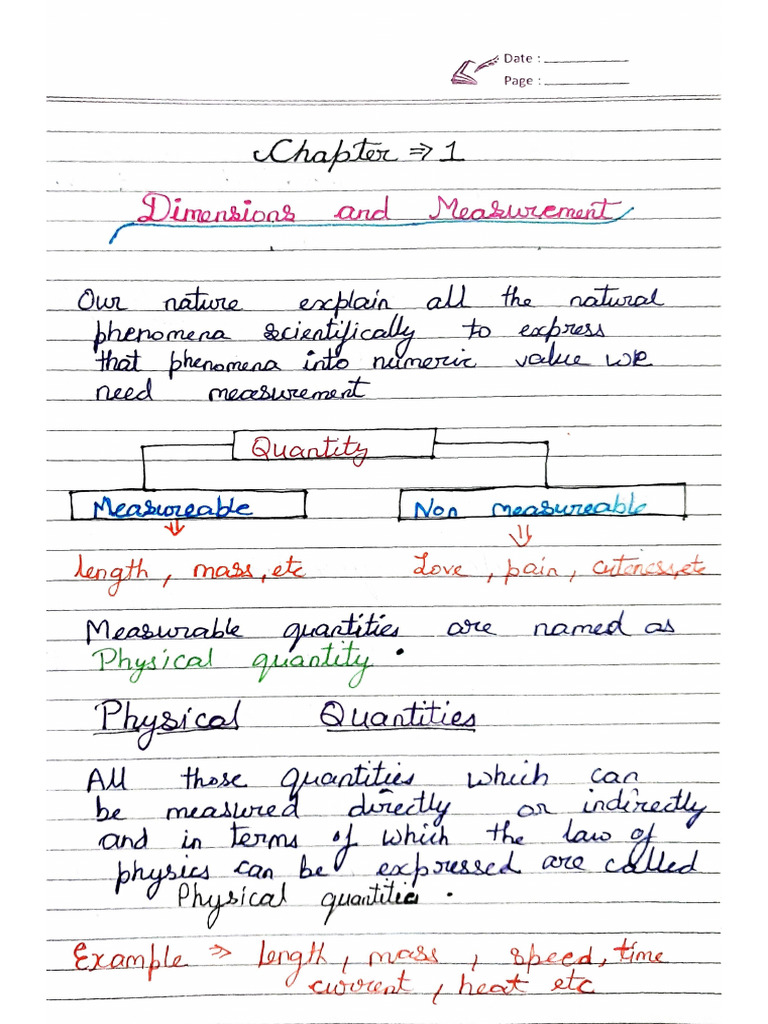 Date : ___________
Page : ___________
Chapter ⇒ 1
Dimensions and Measurement
Our nature explain all the natural
phenomena scientifically to express
that phenomena into numeric value we
need measurement
Quantity
Measureable
Non measureable
length, mass, etc
Love, pain, cuteness, etc
Measurable quantities are named as
Physical quantity .
Physical Quantities
All those quantities which can
be measured directly or indirectly
and in terms of which the law of
physics can be expressed are called
Physical quantities .
Example ⇒ length, mass, speed, time
current, heat etc